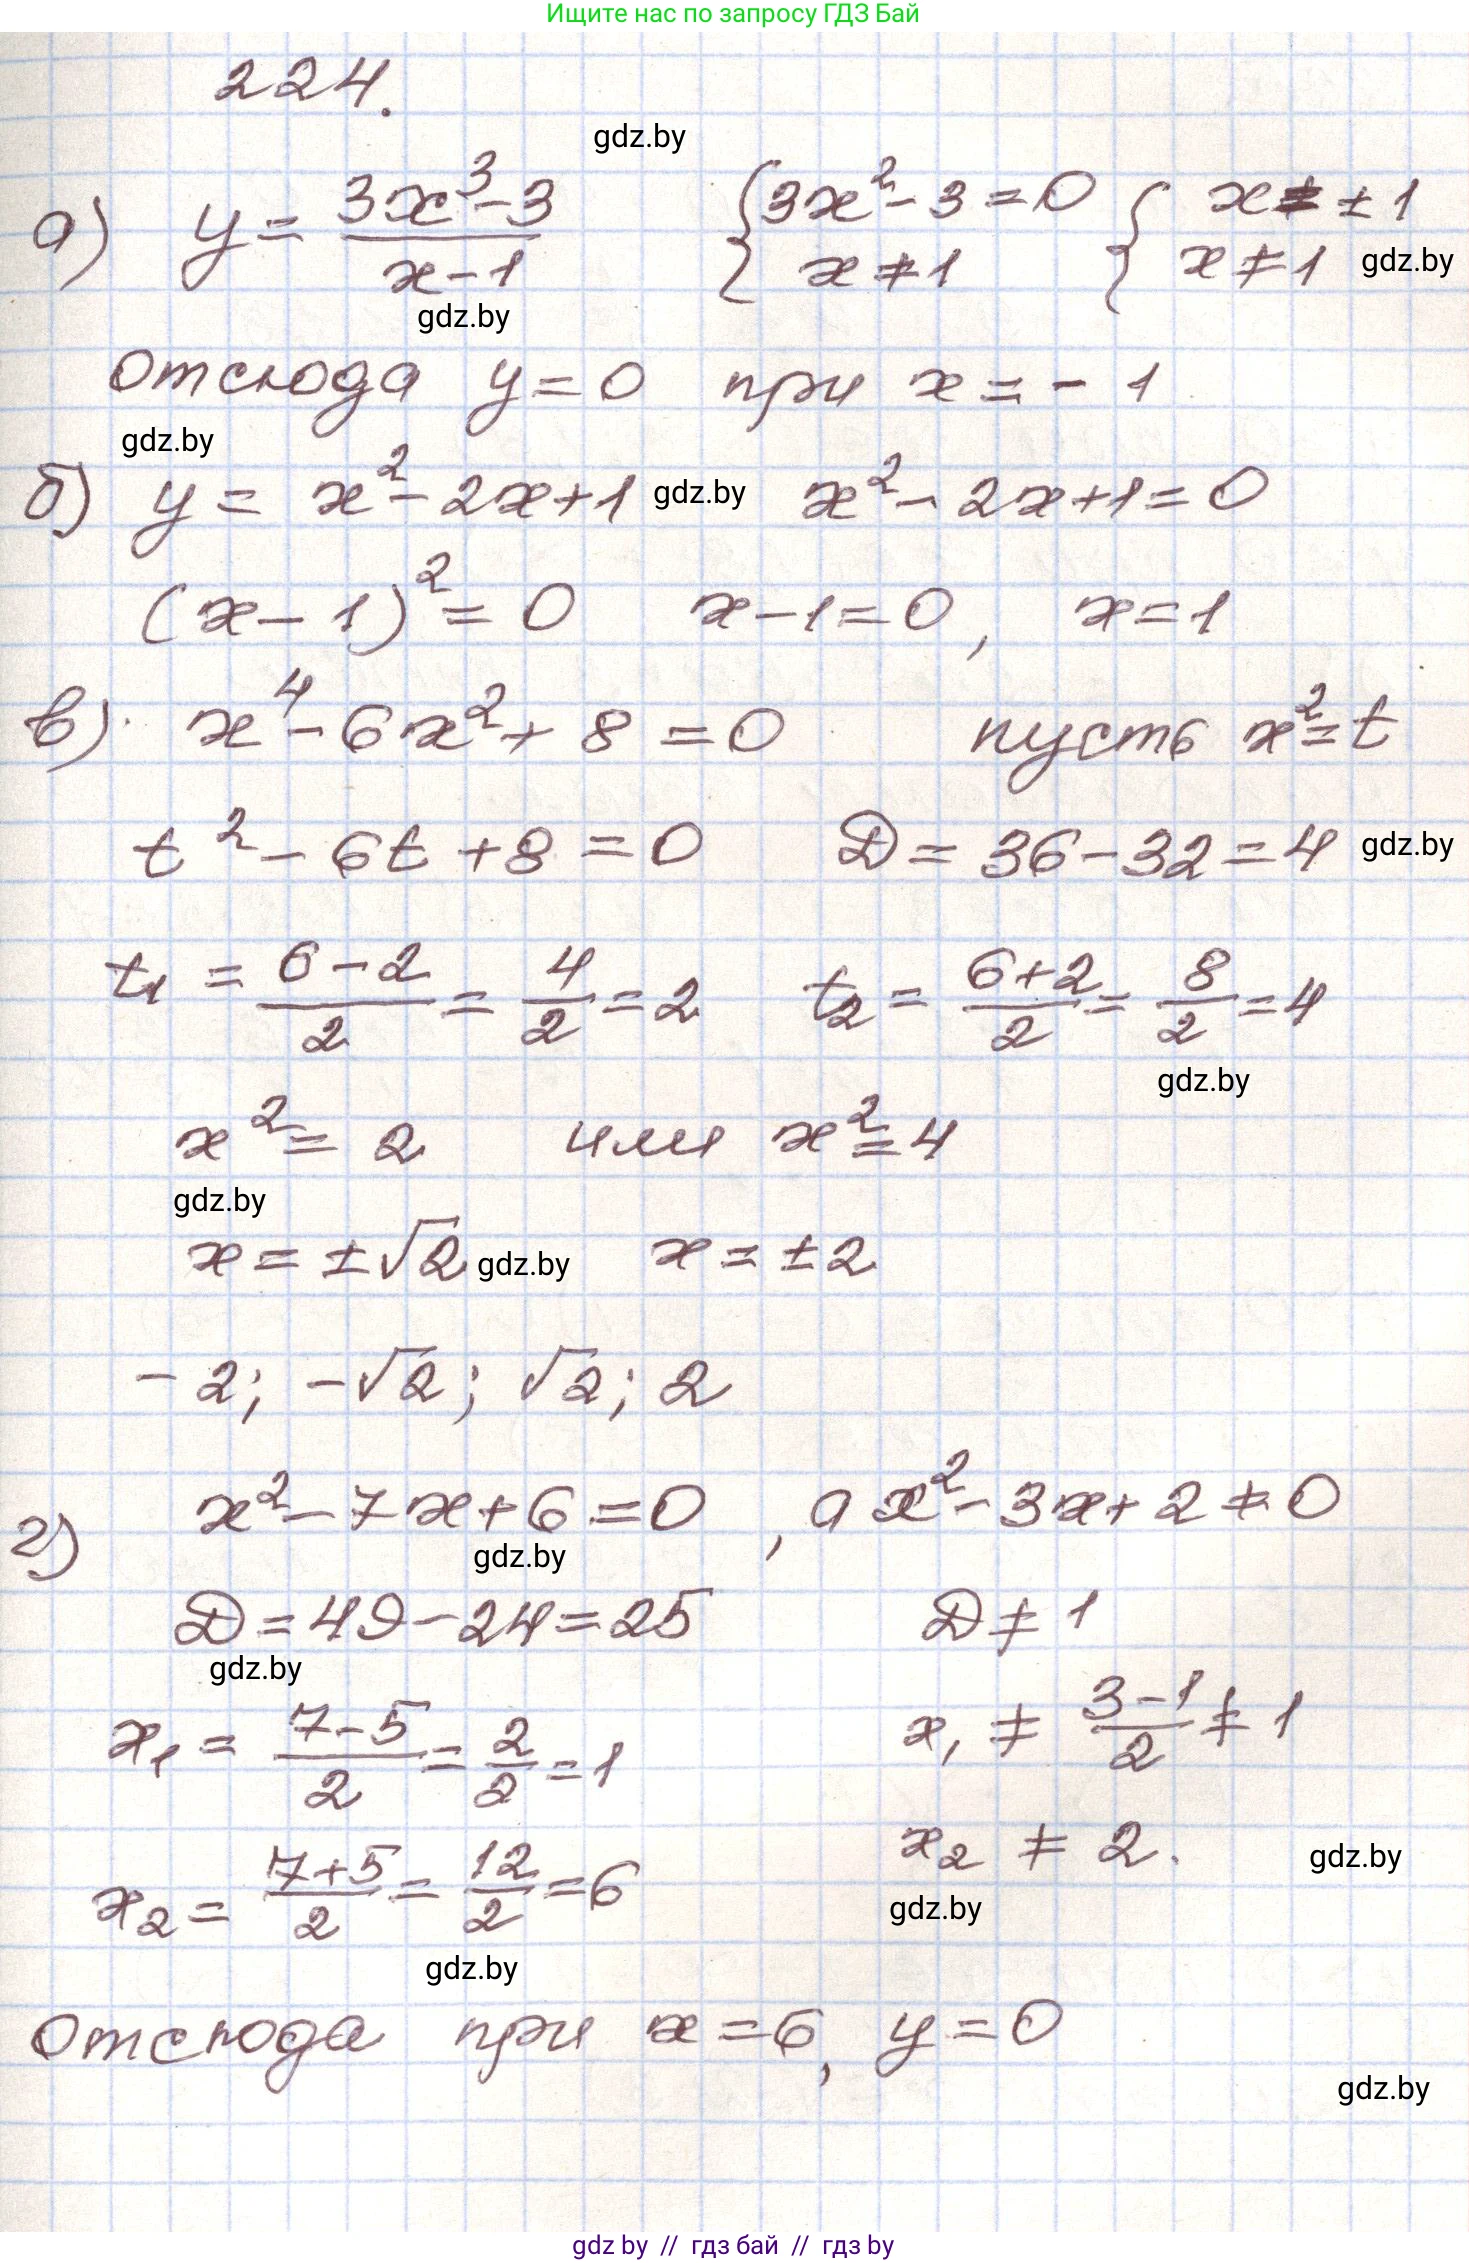 Ищите нас по запросу ГДЗ Бай
224.
gdz.by
а) y = (3x³-3)/(x-1) {3x²-3=0 x≠1 {x=±1 x≠1 gdz.by
gdz.by
отсюда y=0 при x=-1
gdz.by
б) y = x²-2x+1 gdz.by x²-2x+1=0
(x-1)²=0 x-1=0, x=1
в) x⁴-6x²+8=0 пусть x²=t
t²-6t+8=0 D=36-32=4 gdz.by
t₁ = (6-2)/2 = 4/2 = 2 t₂ = (6+2)/2 = 8/2 = 4
gdz.by
x²=2 или x²=4
gdz.by
x=±√2 gdz.by x=±2
-2; -√2; √2; 2
г) x²-7x+6=0, а x²-3x+2≠0
gdz.by
D=49-24=25 D≠1
gdz.by
x₁ = (7-5)/2 = 2/2 = 1 x₁ ≠ (3-1)/2 ≠ 1
x₂ = (7+5)/2 = 12/2 = 6 x₂ ≠ 2. gdz.by
gdz.by
gdz.by
отсюда при x=6, y=0
gdz.by
gdz by // гдз бай // gdz by